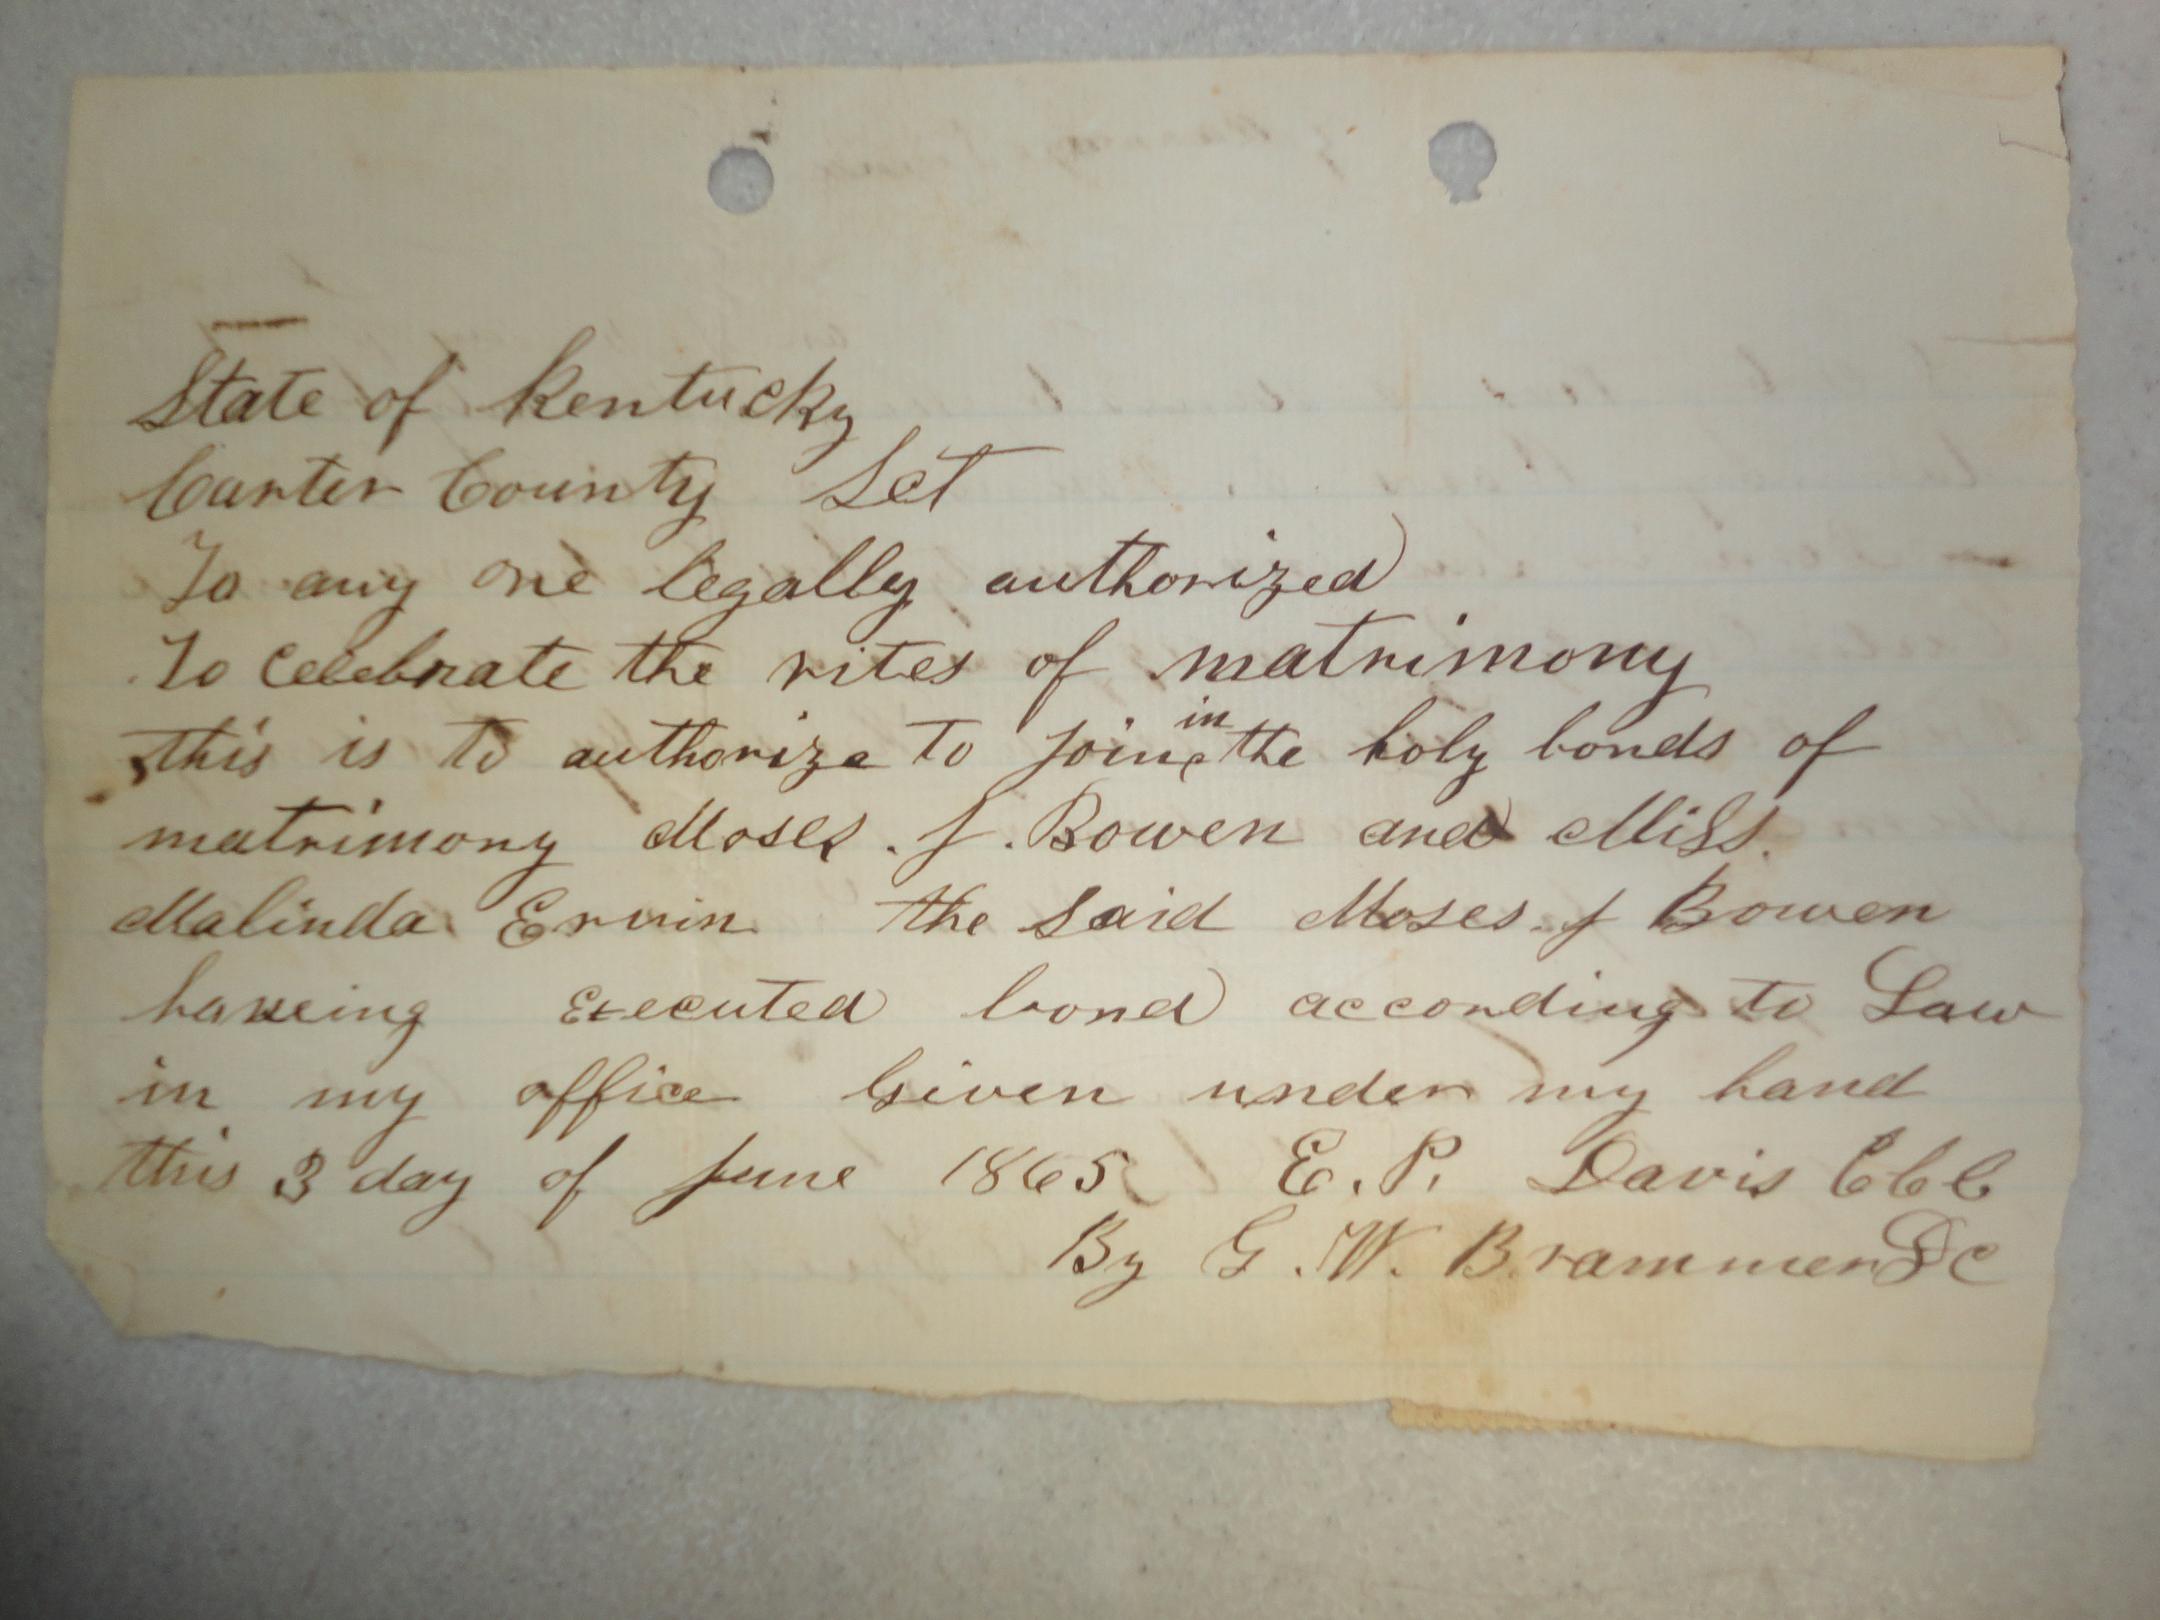 State of Kentucky
Carter County Sct
To any one legally authorized
To Celebrate the rites of matrimony
this is to authorize to Joine in the holy bonds of
matrimony Moses. J. Bowen and Miss.
Malinda Erwin the said Moses. J Bowen
haveing Executed bond according to Law
in my office Given under my hand
this 3 day of June 1865 E. P. Davis CCC
By G. W. Brammer DC